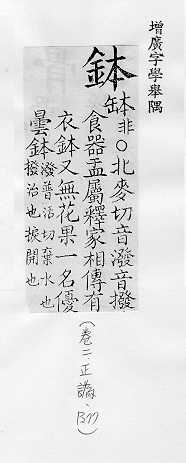 增廣字學舉隅
鉢
缽非○北麥切音潑音撥
食器盂屬釋家相傳有
衣鉢又無花果一名優
曇鉢潑普活切棄水也
撥治也捩開也
(卷二.正譌、